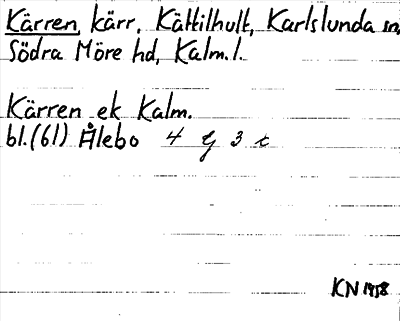 Kärren, kärr, Kättilhult, Karlslunda sn,
Södra Möre hd, Kalm. l.
Kärren ek Kalm.
bl. (61) Ålebo 4 g 3 c
KN 1958